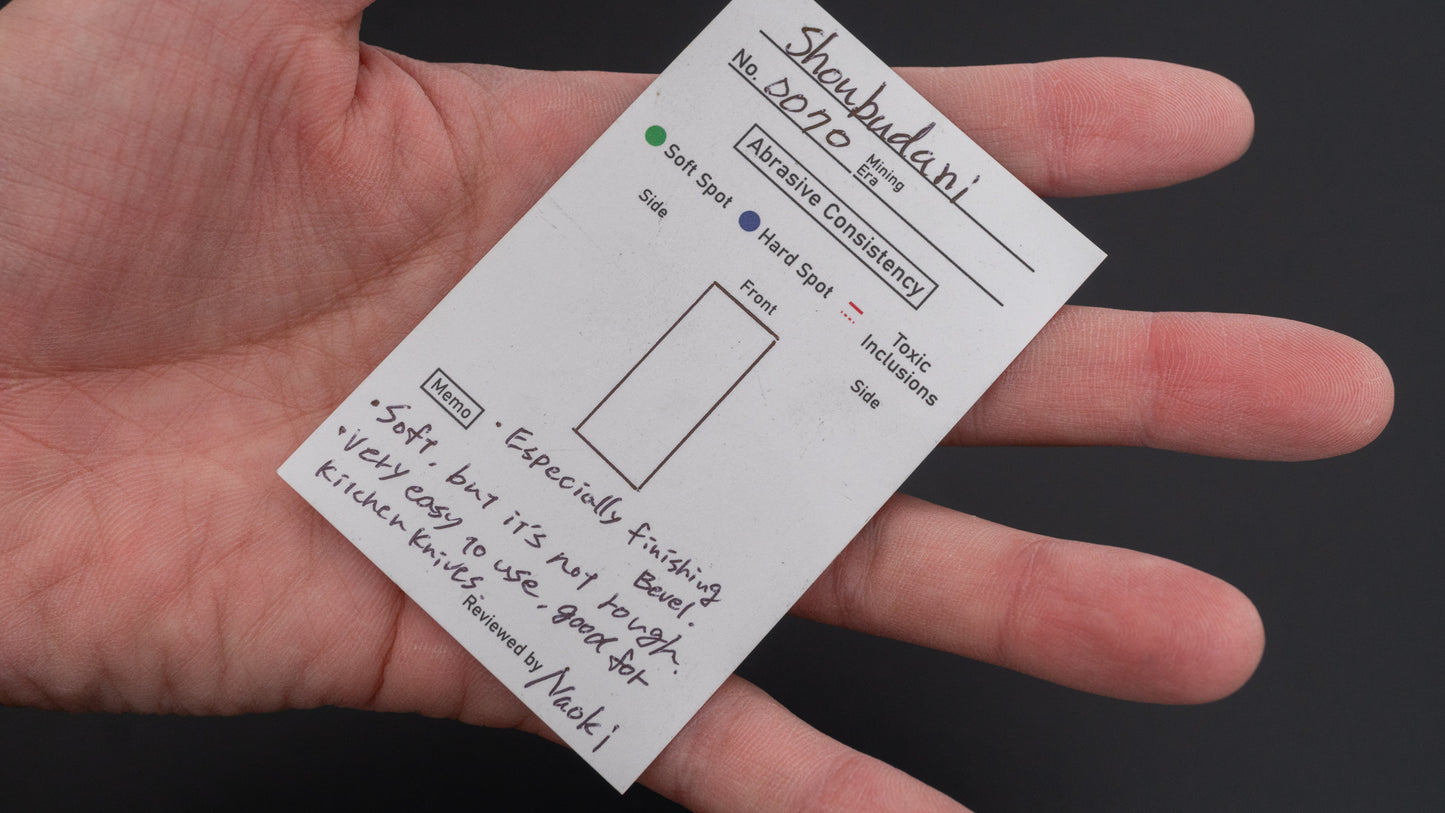 Shoubudani
No. 0070 Mining Era
Abrasive Consistency
Soft Spot Hard Spot Toxic Inclusions
Side Front Side
Memo
• Especially finishing
Bevel.
• Soft, but it's not rough.
• Very easy to use, good for
Kitchen Knives.
Reviewed by Naoki